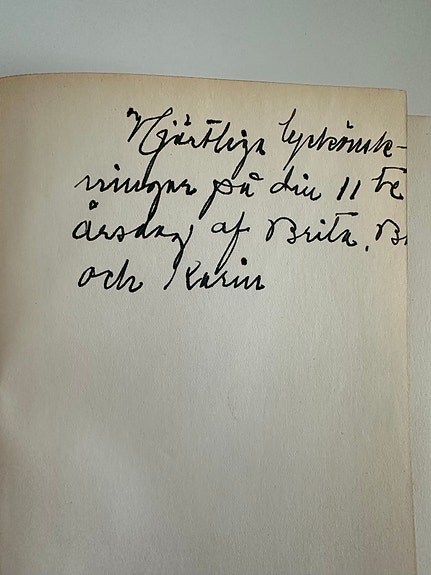 Hjärtliga lyckönsk-
ningar på din 11 te
årsdag af Brita, B
och Karin